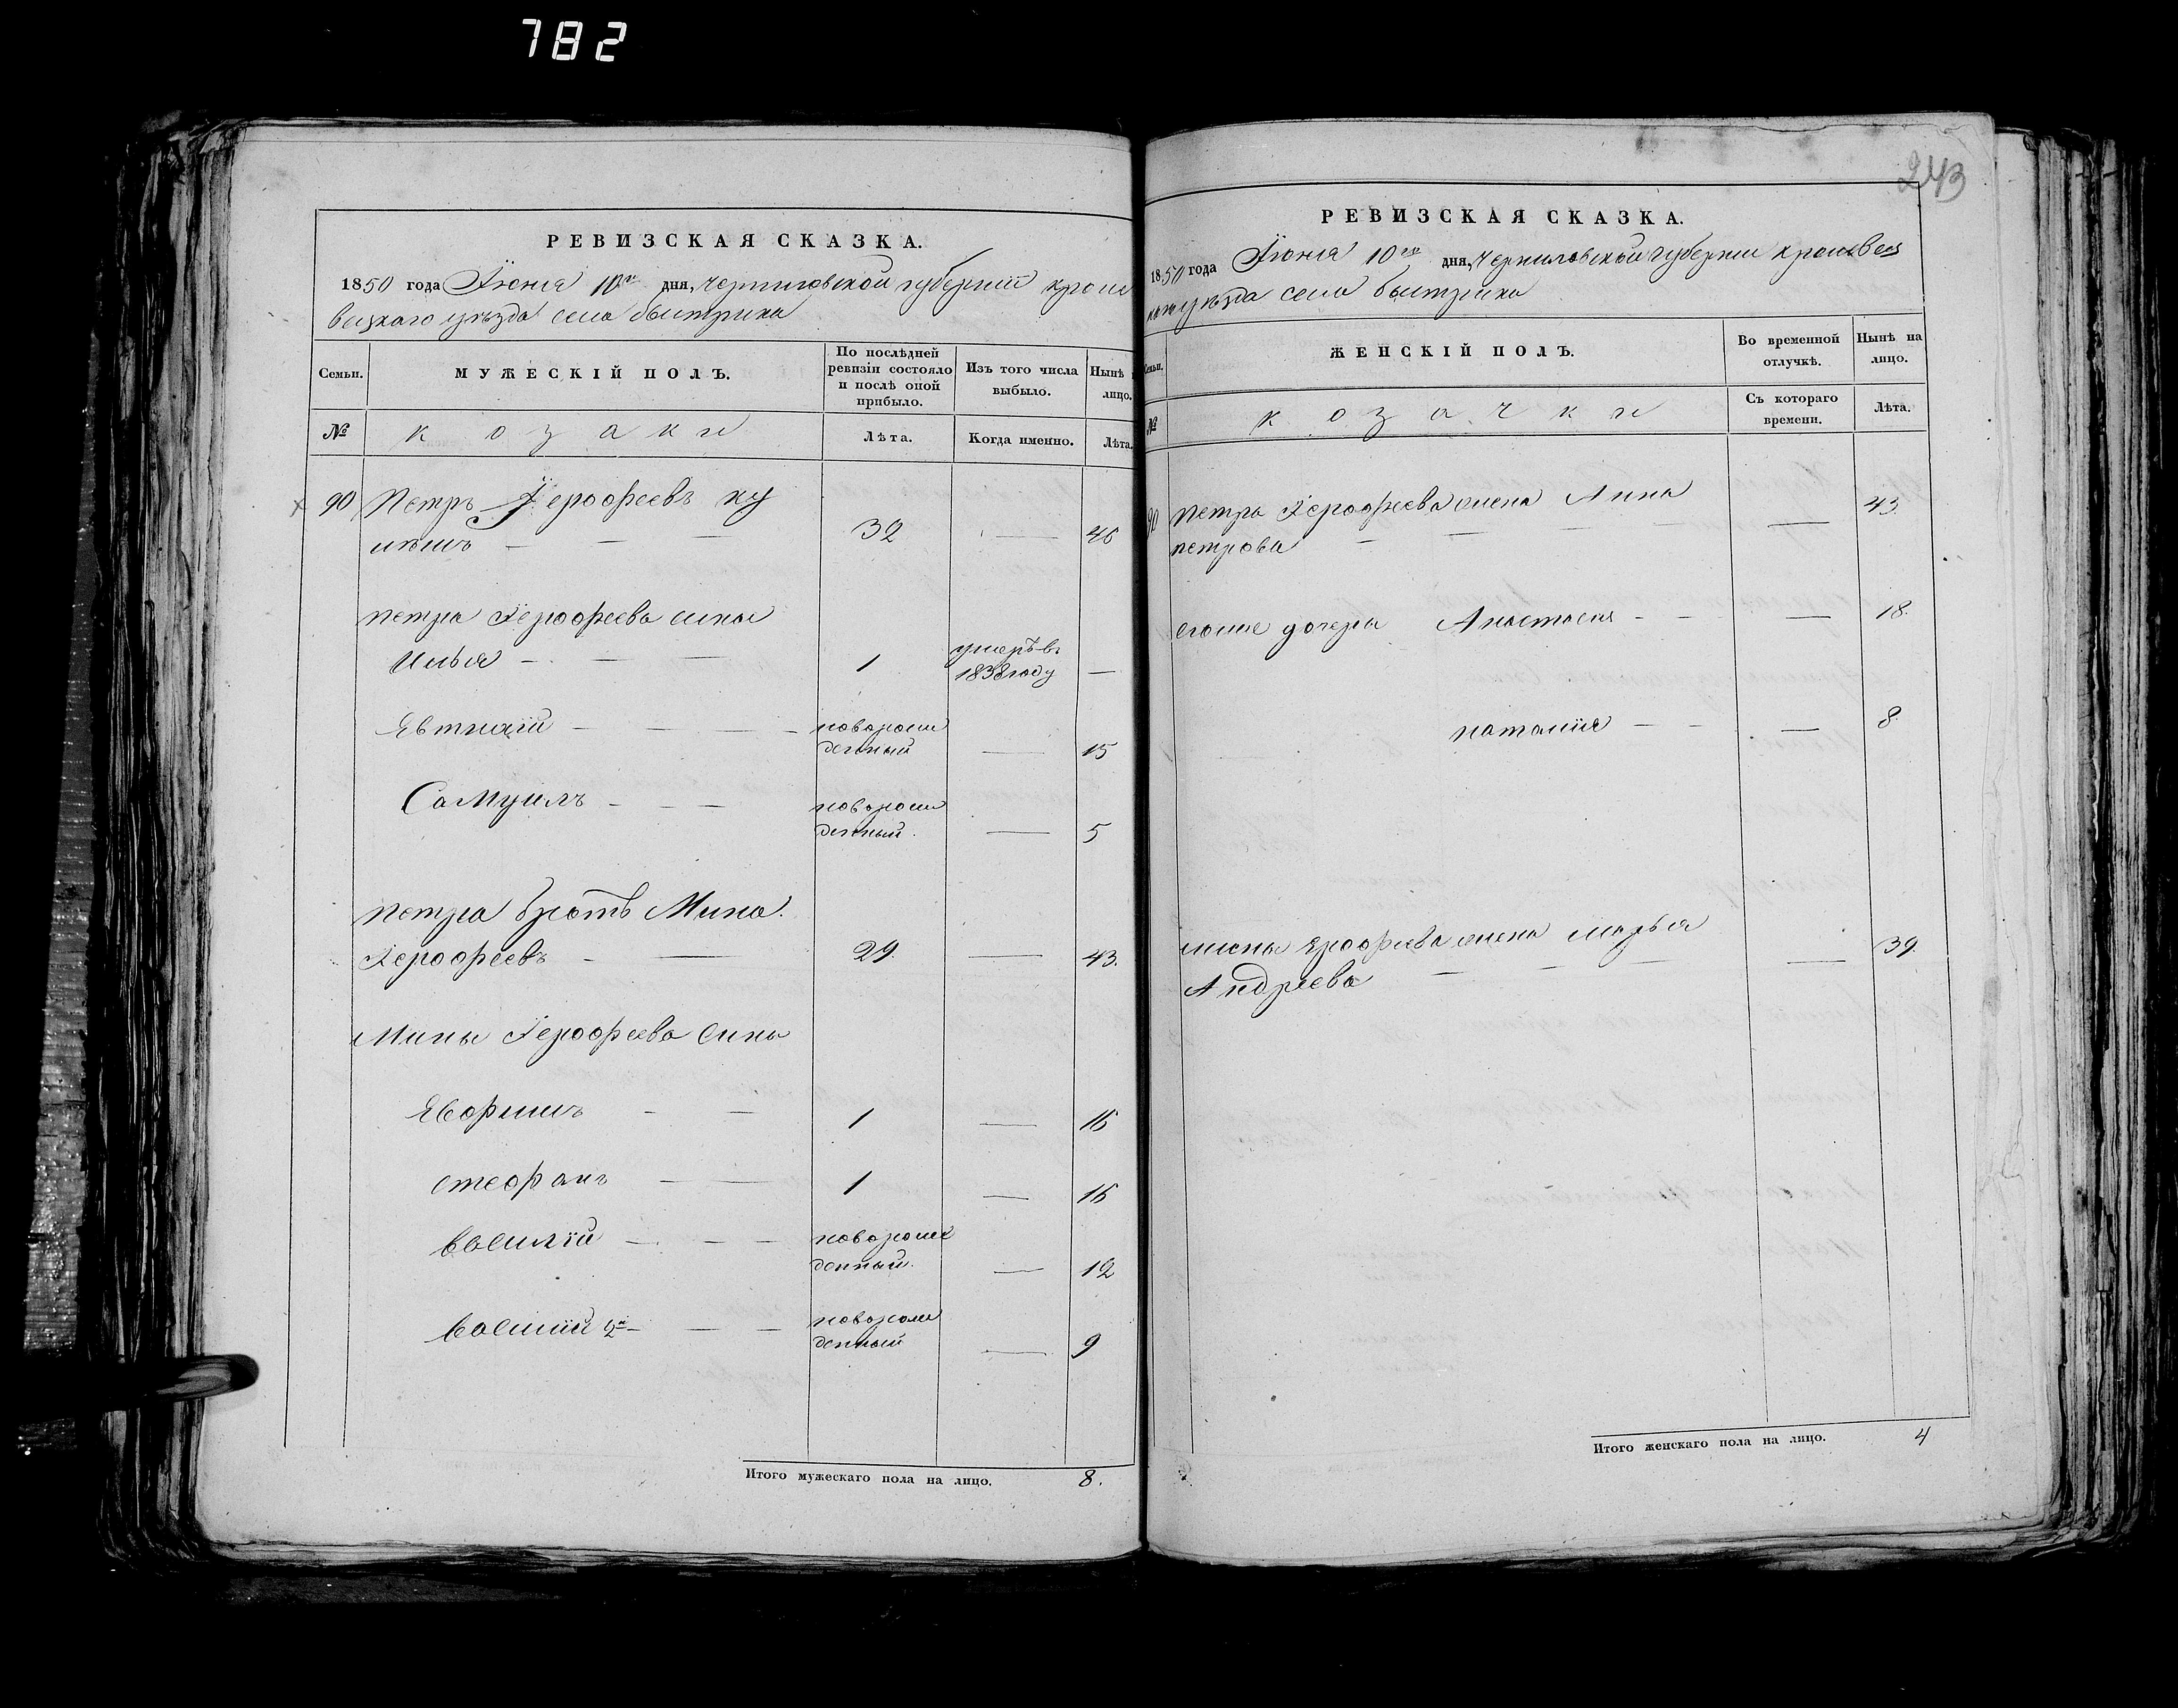 782
РЕВИЗСКАЯ СКАЗКА.
1850 года Іюня 10го дня, Черниговской губерніи кроле
вецкаго уѣзда села быстрика
Семьи.
МУЖЕСКІЙ ПОЛЪ.
По послѣдней ревизіи состояло и послѣ оной прибыло.
Изъ того числа выбыло.
Нынѣ
лицо.
№
козаки
Лѣта.
Когда именно.
Лѣта.
90 Петръ Іерофеевъ
32 — 46
петра Іерофеева сины
Илья — 1 умеръ в 1838 году —
Евтихій — новорожденный — 15
Самуилъ — новорожденный — 5
петра братъ Мина
Іерофеевъ — 29 — 43.
Мины Іерофеева сины
Евфимъ — 1 — 16
стефанъ — 1 — 16
василій — новорожденный — 12
василій 2й — новорожденный — 9
Итого мужескаго пола на лицо. 8.
243
РЕВИЗСКАЯ СКАЗКА.
1850 года Іюня 10го дня, Черниговской губерніи кролевец
каго уѣзда села быстрика
Семьи.
ЖЕНСКІЙ ПОЛЪ.
Во временной отлучкѣ.
Нынѣ на лицо.
№
козачки
Съ котораго времени.
Лѣта.
90 петра Іерофеева жена Анна — 43.
петрова
егоже дочери Анастасия — 18.
наталия — 8.
мины Ерофеева жена марья — 39.
Андреева
Итого женскаго пола на лицо. 4